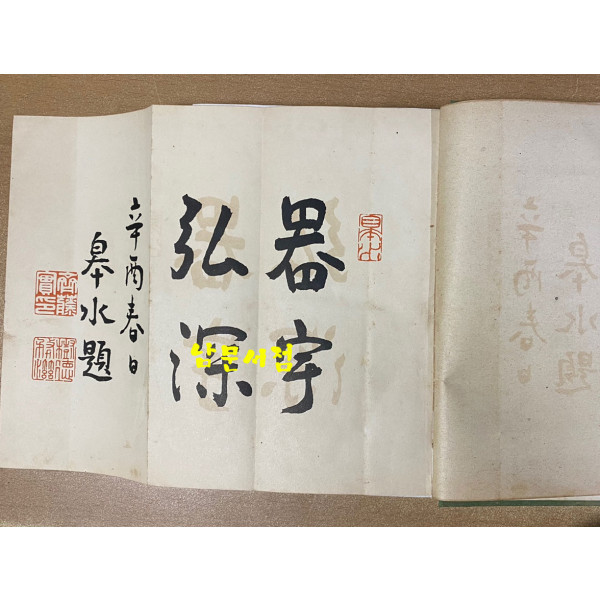 器宇
弘深
辛酉春日
皐水題
남문서점